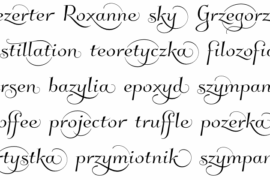 ezerter Roxanne sky Grzegorz
stillation teoretyczka filozofia
ersen bazylia epoxyd szympan
offee projector truffle pozerka
rtystka przymiotnik szympan